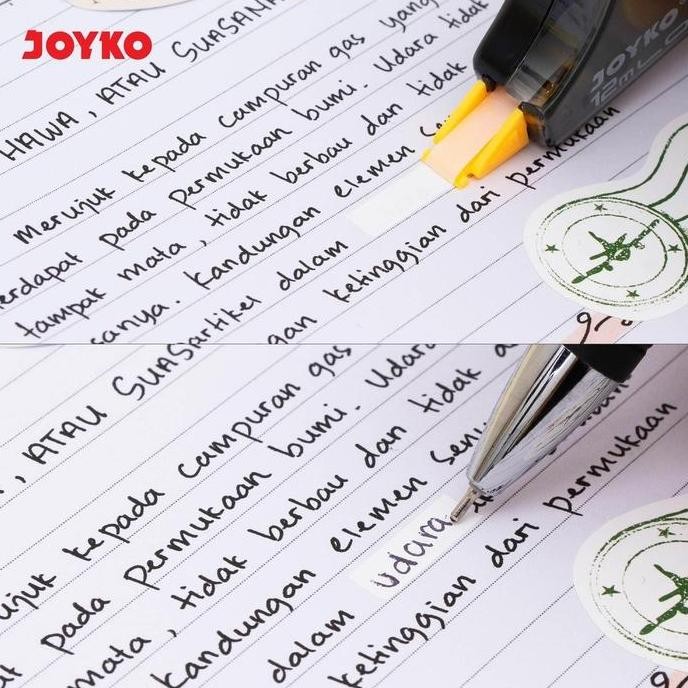 JOYKO
HAWA, ATAU SUASANA
Merujuk kepada campuran gas yang
erdapat pada permukaan bumi. Udara tidak
tampak mata, tidak berbau dan tidak
sanya. Kandungan elemen
artikel dalam
ketinggian dari permukaan
JOYKO
12m
, ATAU SUAS
ujuk kepada campuran gas
pada permukaan bumi. Udara
mata, tidak berbau dan tidak
kandungan elemen
dalam udara
ketinggian dari permukaan